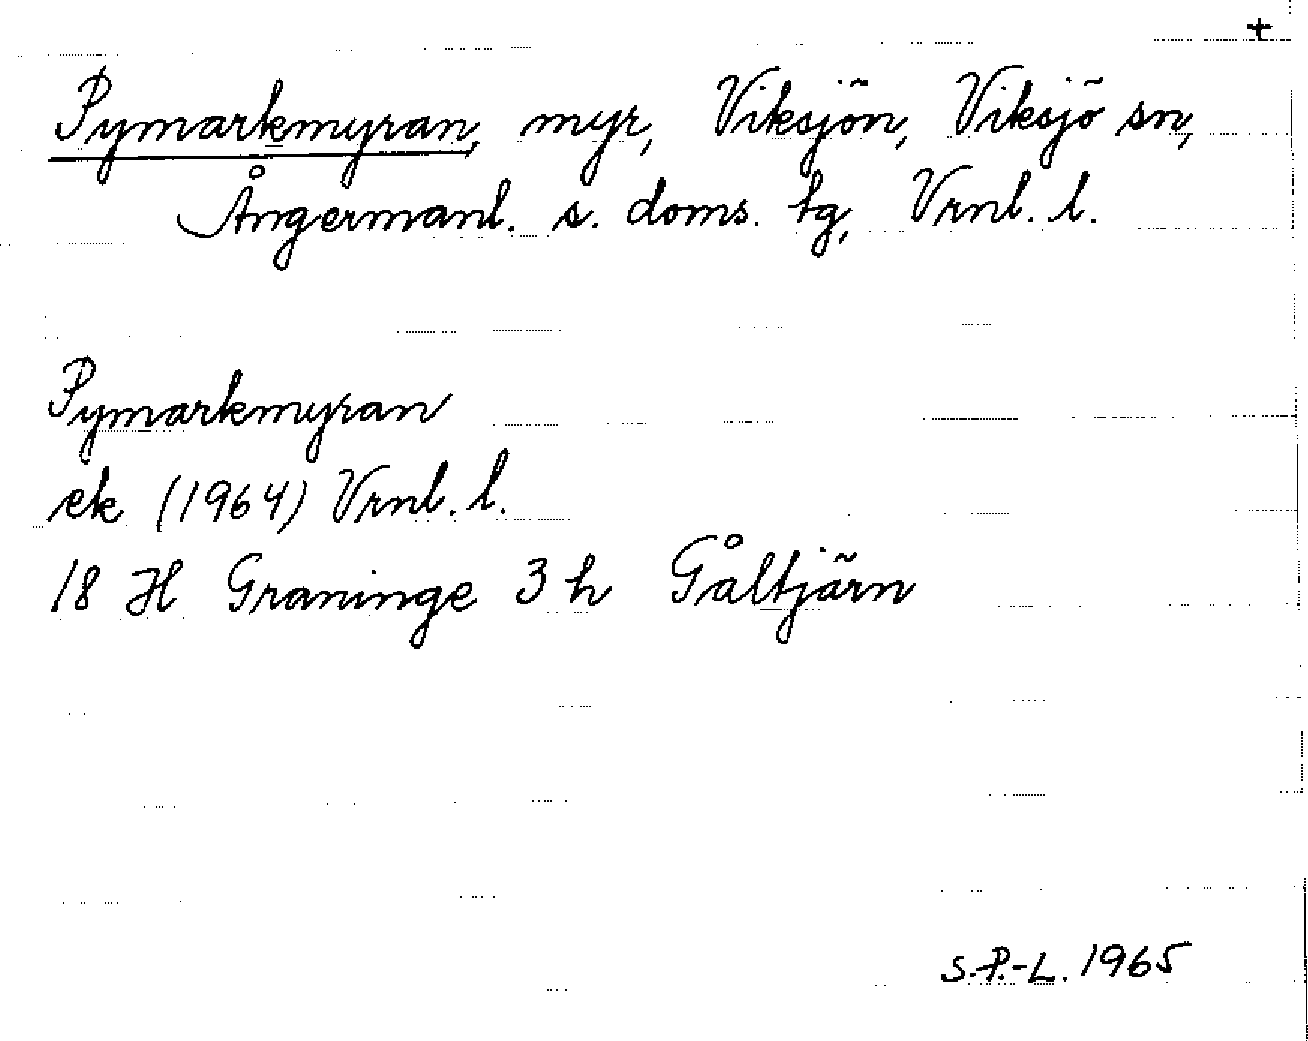 +
Pymarkmyran, myr, Viksjön, Viksjö sn,
Ångermanl. s. doms. tg, Vrnl. l.
Pymarkmyran
ek (1964) Vrnl. l.
18 H Graninge 3 h Gåltjärn
S.-P.-L. 1965